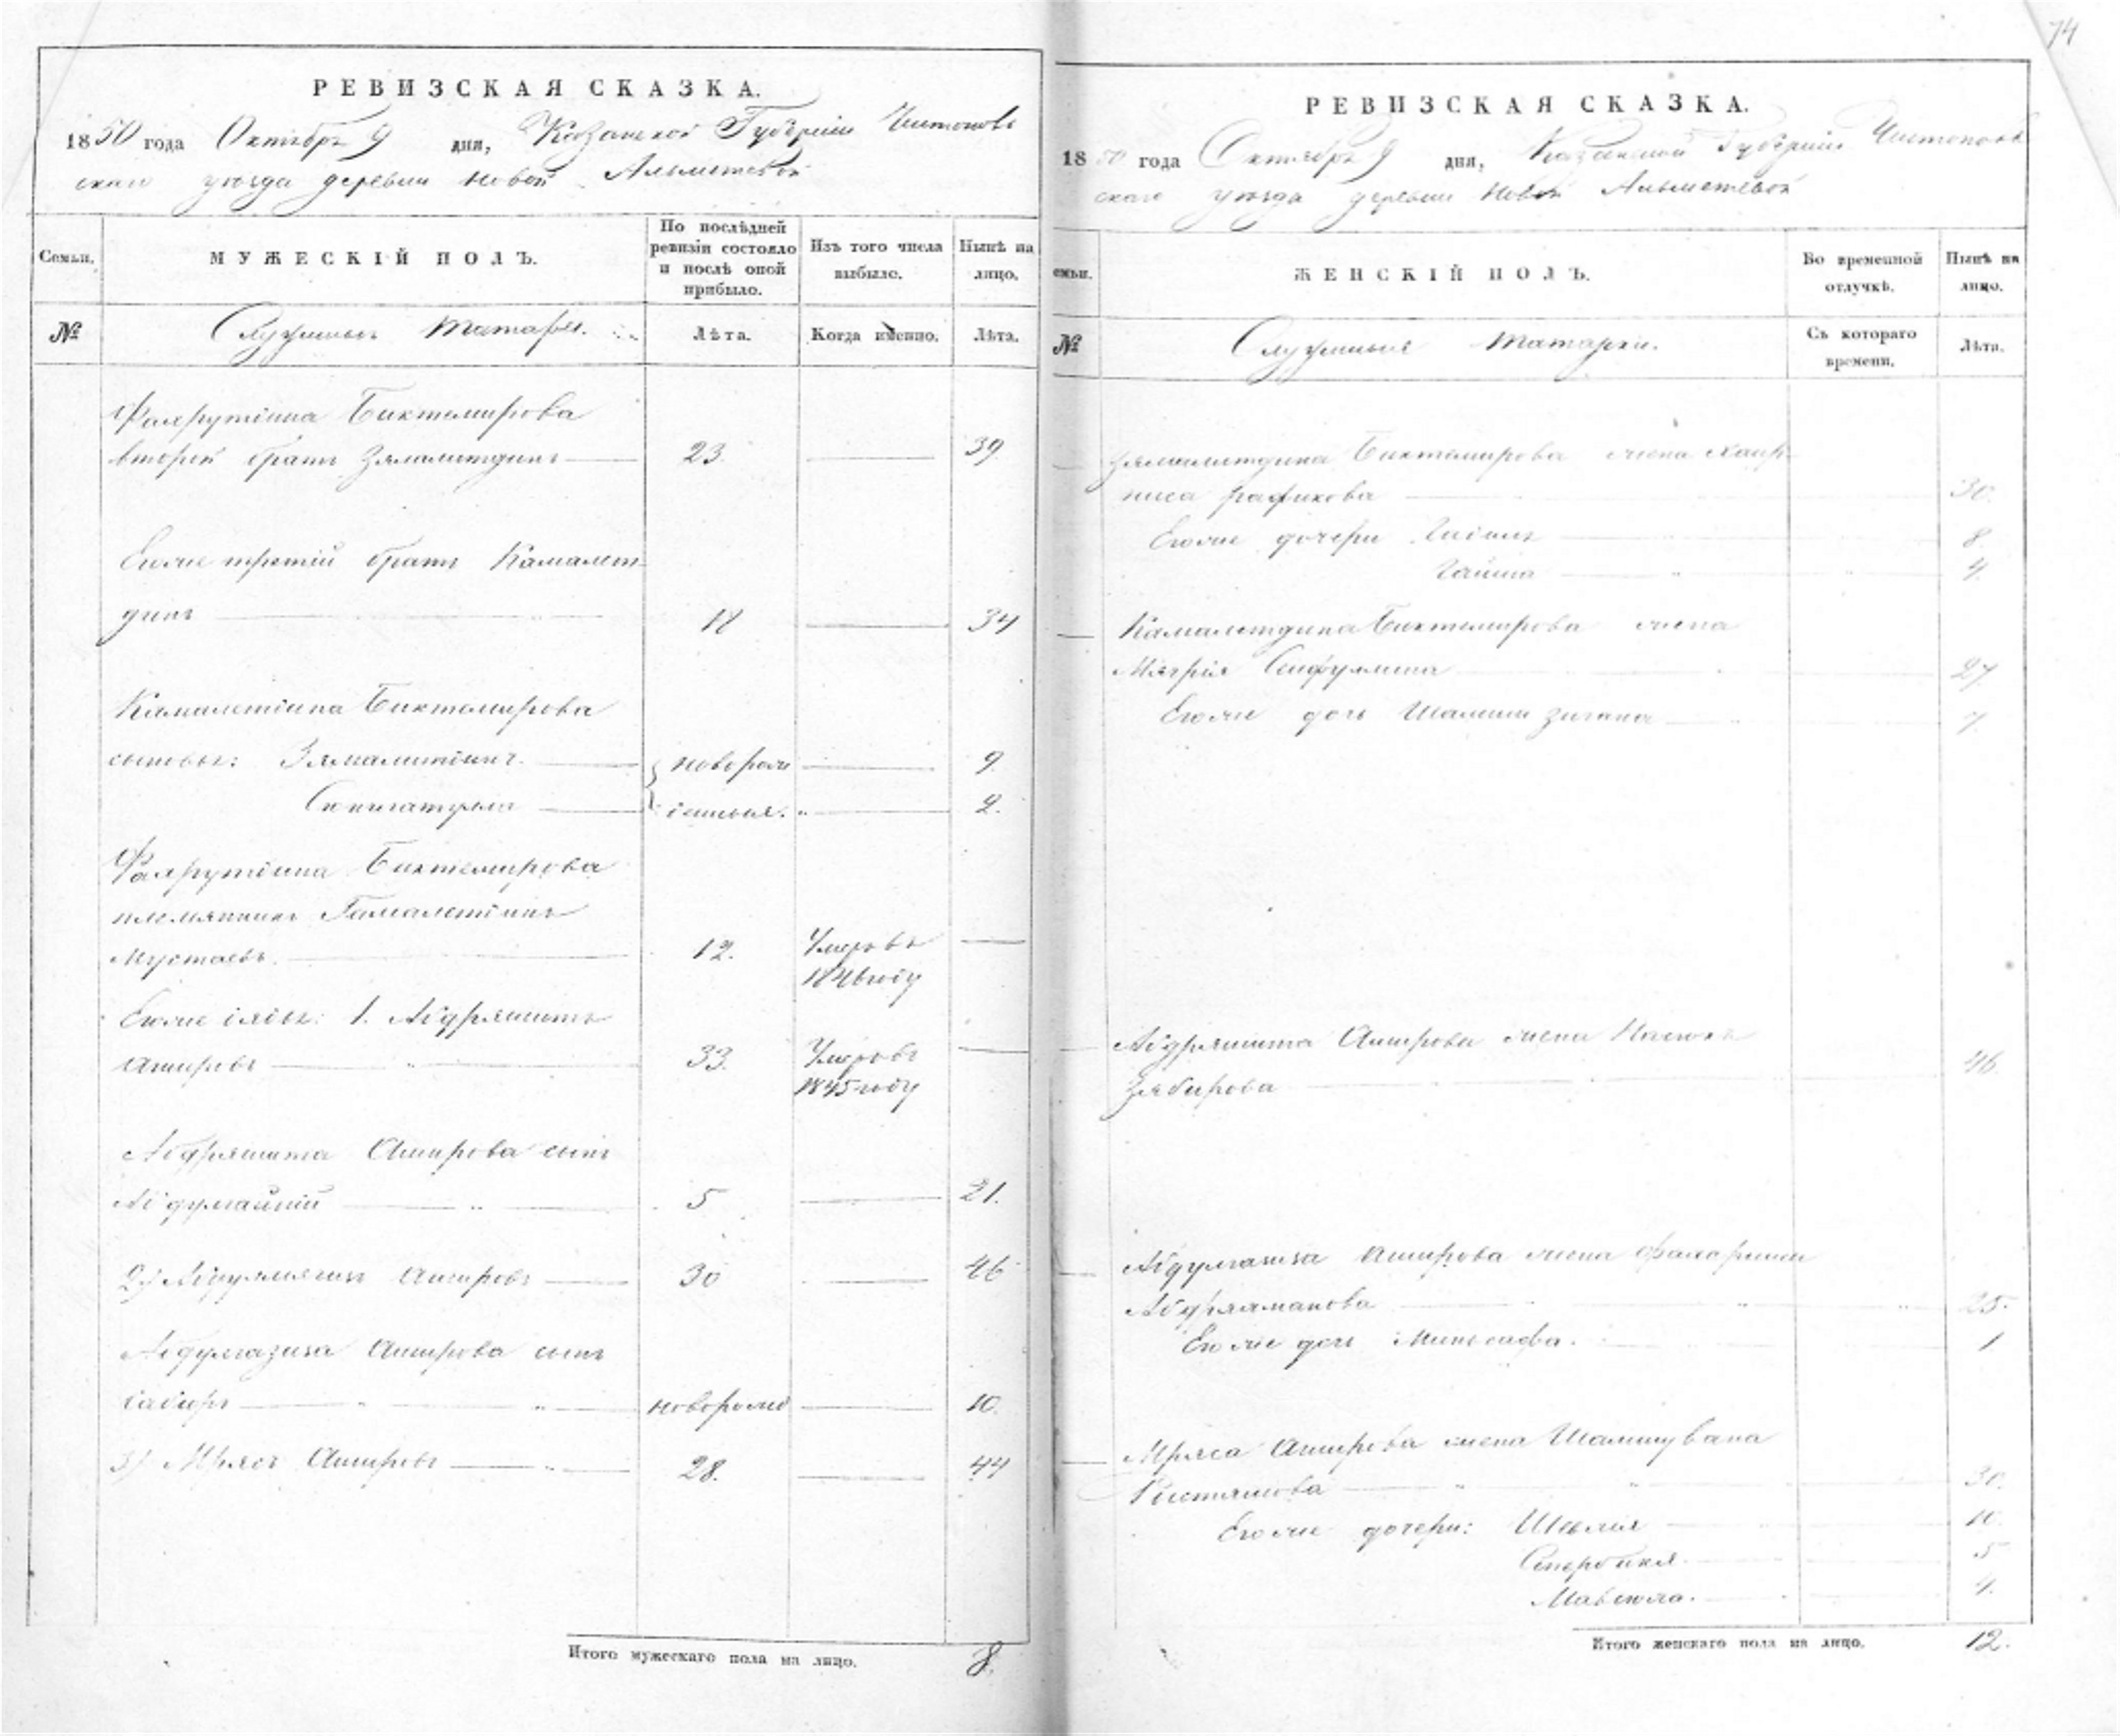 74
РЕВИЗСКАЯ СКАЗКА.
1850 года Октября 9 дня, Казанской Губерніи Чистополь
скаго уѣзда деревни новой Альметевой
Семьи.
МУЖЕСКІЙ ПОЛЪ.
По послѣдней ревизіи состояло и послѣ оной прибыло.
Изъ того числа выбыло.
Нынѣ на лицо.
№
Служилые Татары.
Лѣта.
Когда именно.
Лѣта.
Фахрутдина Биктемирова
второй братъ Зямалитдинъ 23. 39.
Егоже третій братъ Камалет
динъ 18 34
Камалетдина Биктемирова
сыновья: Зямалитдинъ новорож 9.
денныя. 2.
Фахрутдина Биктемирова
племянникъ Гамалетдинъ
Мустаевъ. 12. Умеръ въ
1846 году
Егоже дяди: 1. Абдряшитъ
Ашировъ 33. Умеръ въ
1845 году
Абдряшита Аширова сынъ
5 21.
2) Ашировъ 30 46
Абдулгазиза Аширова сынъ
Сабиръ новорожд 10.
3) Мрясъ Ашировъ 28. 44
Итого мужескаго пола на лицо. 8.
РЕВИЗСКАЯ СКАЗКА.
1850 года Октября 9 дня, Казанской Губерніи Чистополь
скаго уѣзда деревни новой Альметевой
емьи.
ЖЕНСКІЙ ПОЛЪ.
Во временной отлучкѣ.
Нынѣ на лицо.
№
Служилые Татарки.
Съ котораго времени.
Лѣта.
Зямалитдина Биктемирова жена Хаир
ниса Рафикова 30.
Егоже дочери 8.
Гайша 4.
Камалетдина Биктемирова жена
Сайфулина 27.
Егоже дочь 7.
Абдряшита Аширова жена
Зябирова 46.
Абдулгазиза Аширова жена
Абдряхманова 25.
Егоже дочь Миньсафа. 1
Мряса Аширова жена
Рястямова 30.
Егоже дочери: 10.
5
4.
Итого женскаго пола на лицо. 12.